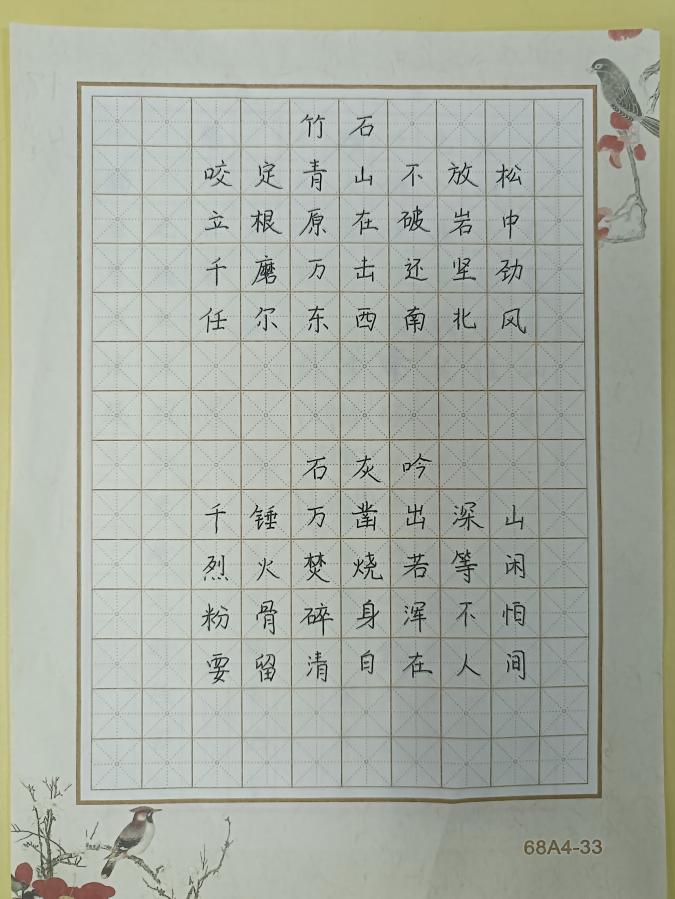 竹石
咬定青山不放松
立根原在破岩中
千磨万击还坚劲
任尔东西南北风
石灰吟
千锤万凿出深山
烈火焚烧若等闲
粉骨碎身浑不怕
要留清白在人间
68A4-33